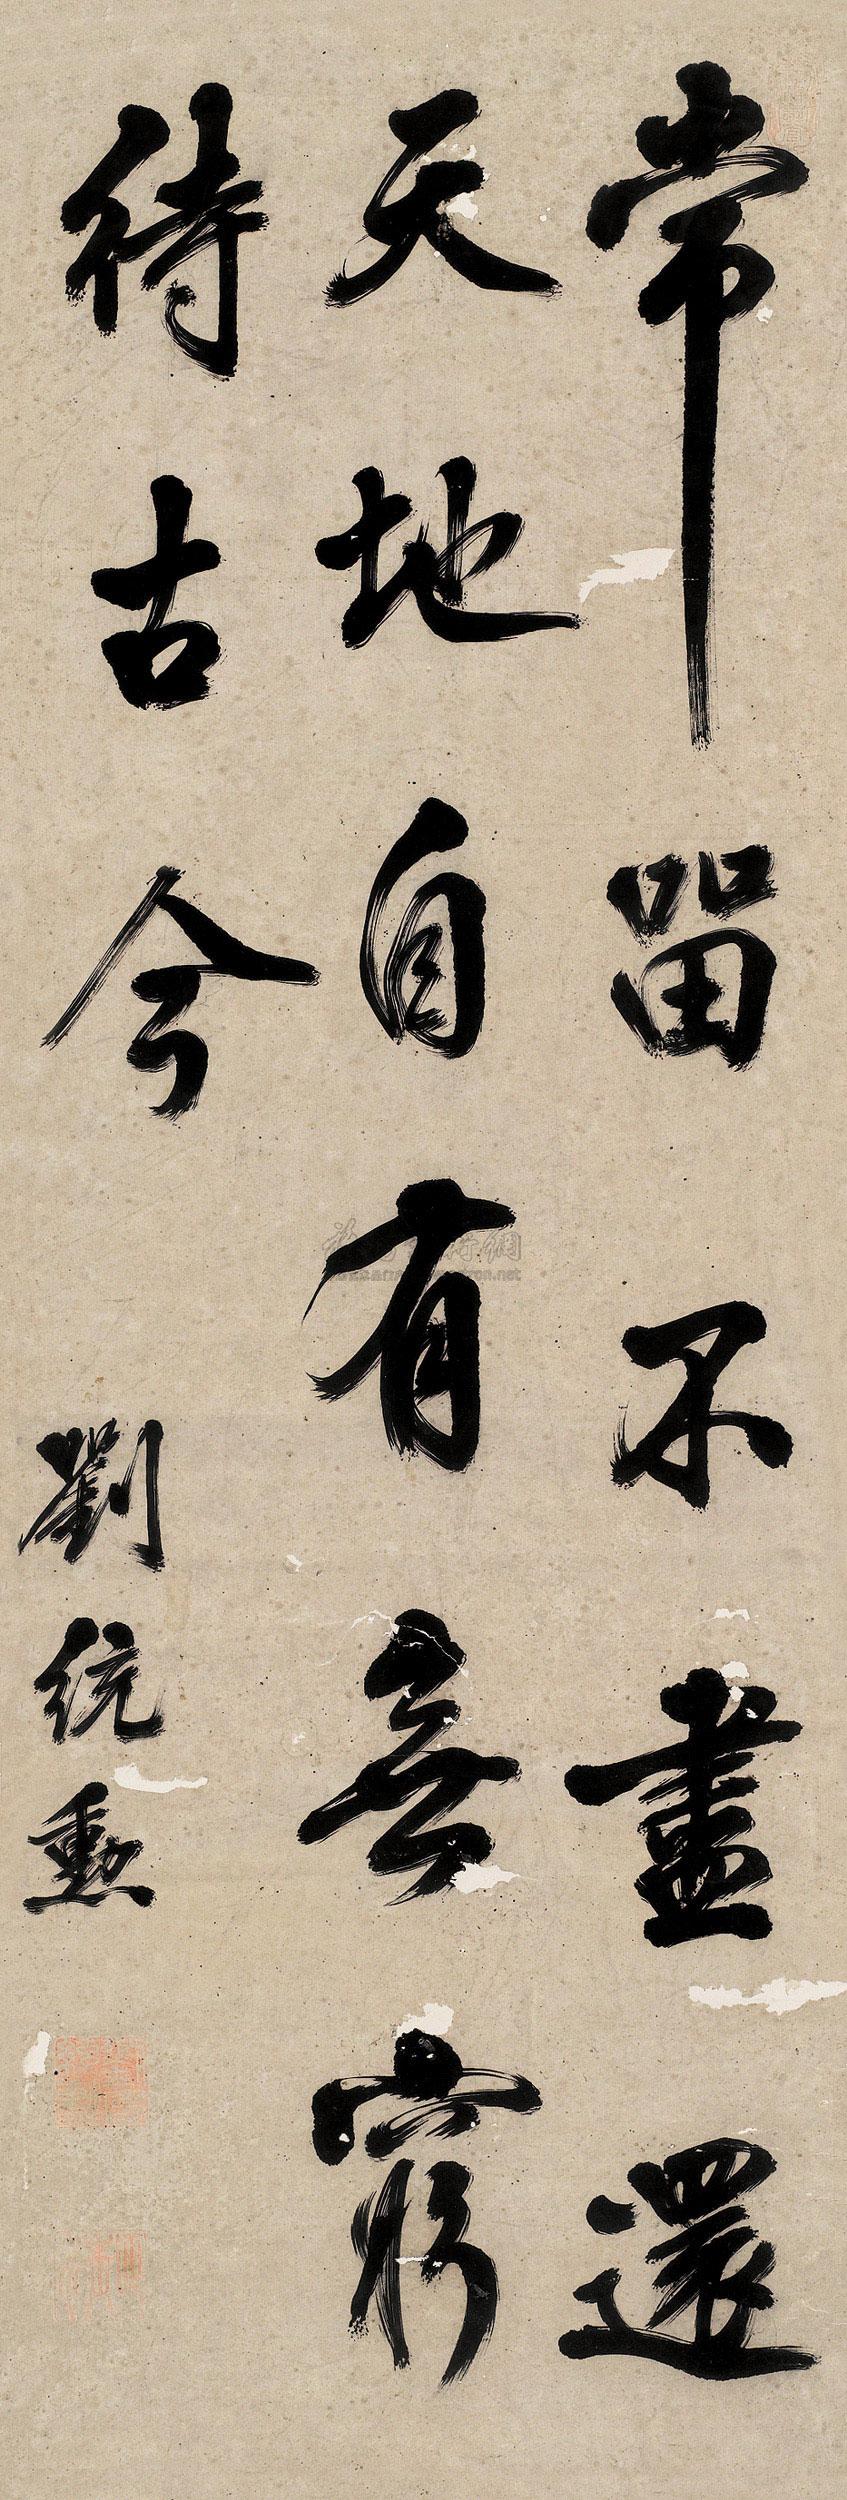 常畱不盡還
天地自有無窮
待古今
劉統勳